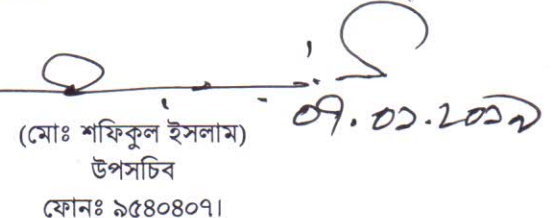 ০৭.০১.২০১৯
(মোঃ শফিকুল ইসলাম)
উপসচিব
ফোনঃ ৯৫৪০৪০৭।